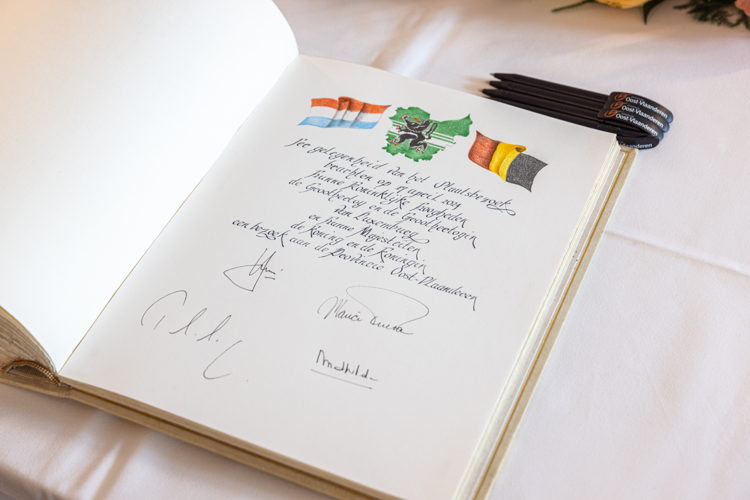 Ter gelegenheid van het Staatsbezoek
brachten op 17 april 2024
Hunne Koninklijke Hoogheden
de Groothertog en de Groothertogin
van Luxemburg
en Hunne Majesteiten
de Koning en de Koningin
een bezoek aan de Provincie Oost-Vlaanderen
Maria Teresa
Mathilde
Oost-Vlaanderen
Oost-Vlaanderen
Oost-Vlaanderen
Vlaanderen